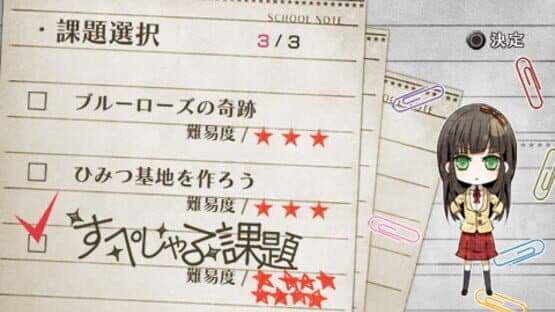 SCHOOL NOTE
・課題選択
3/3
決定
ブルーローズの奇跡
難易度/★★★
ひみつ基地を作ろう
難易度/★★★
すぺしゃる課題
難易度/★★★★★★★★